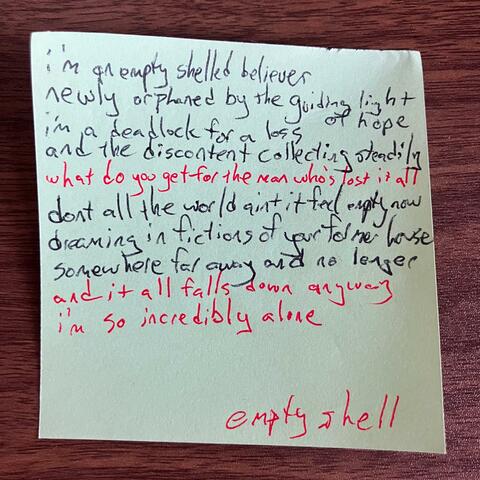 i'm an empty shelled believer
newly orphaned by the guiding light
of hope
i'm a deadlock for a loss
and the discontent collecting steadily
what do you get for the man who's lost it all
dont all the world aint it feel empty now
dreaming in fictions of your former house
somewhere far away and no longer
and it all falls down anyway
i'm so incredibly alone
empty shell